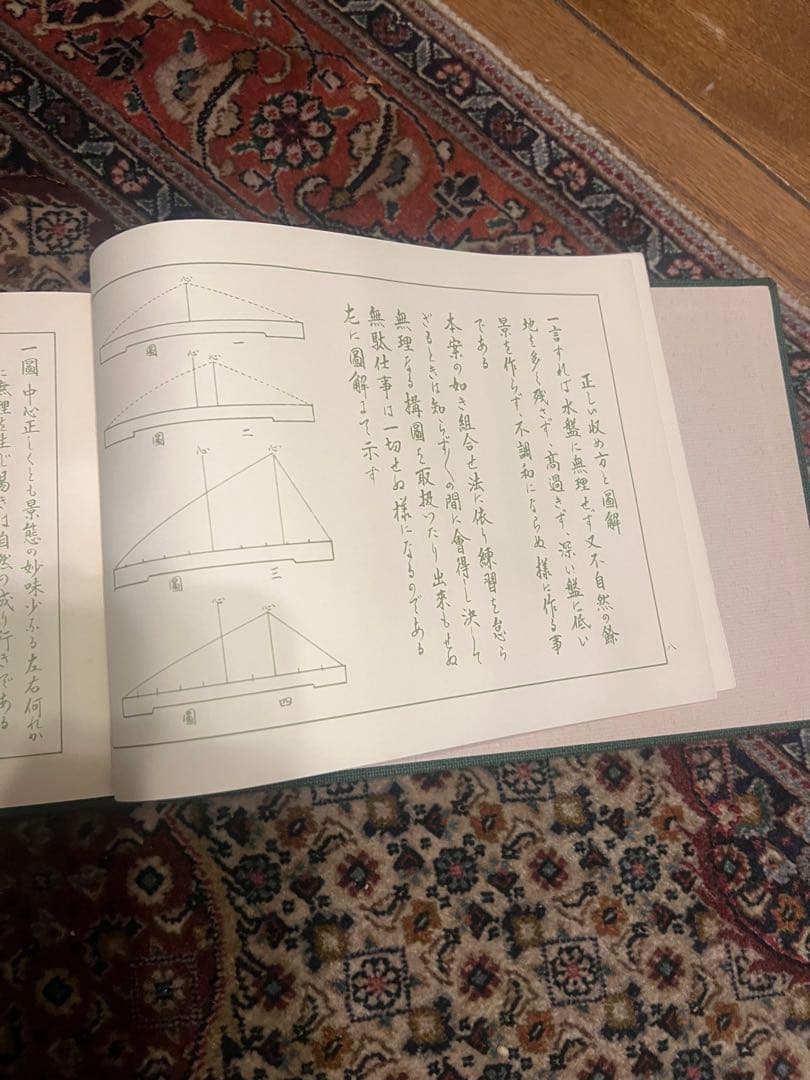 正しい收め方と圖解
一言すれば水盤に無理せず又不自然の餘
地を多く残さず、高過きず、深い盤に低い
景を作らず、不調和にならぬ様に作る事
である
本案の如き組合せ法に依り練習を怠ら
ざるときは知らず〱の間に會得し決して
無理なる構圖を取扱つたり出来もせぬ
無駄仕事は一切せぬ様になるのである
左に圖解して示す
八
心
一圖
心 心
二圖
心 心
三圖
心 心
四圖
一圖 中心正しくとも景態の妙味少ふる左右何れか
に無理を生じ易きは自然の成り行きである